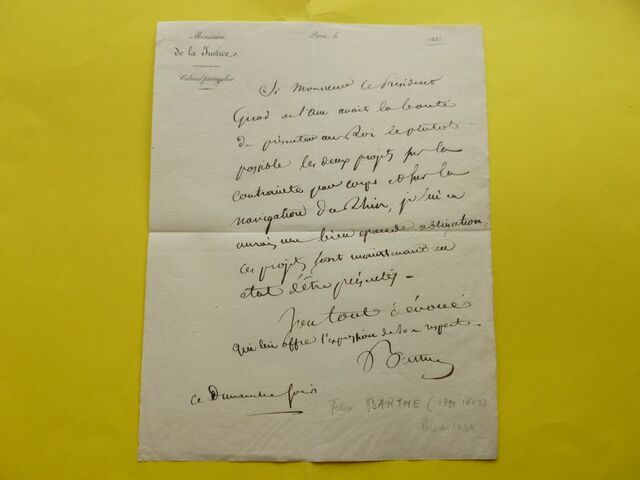 Ministère
de la Justice.
Cabinet particulier.
Paris, le 183
Si Monsieur le Président
Girod de l'Ain avait la bonté
de présenter au Roi le plutot
possible les deux projets sur la
contrainte par corps et sur la
navigation du Rhin, je lui en
aurais une bien grande obligation.
ces projets sont maintenant en
état d'être présentés -
Son tout dévoué
qui lui offre l'expression de son respect -
Barthe
ce Dimanche soir
Felix BARTHE (